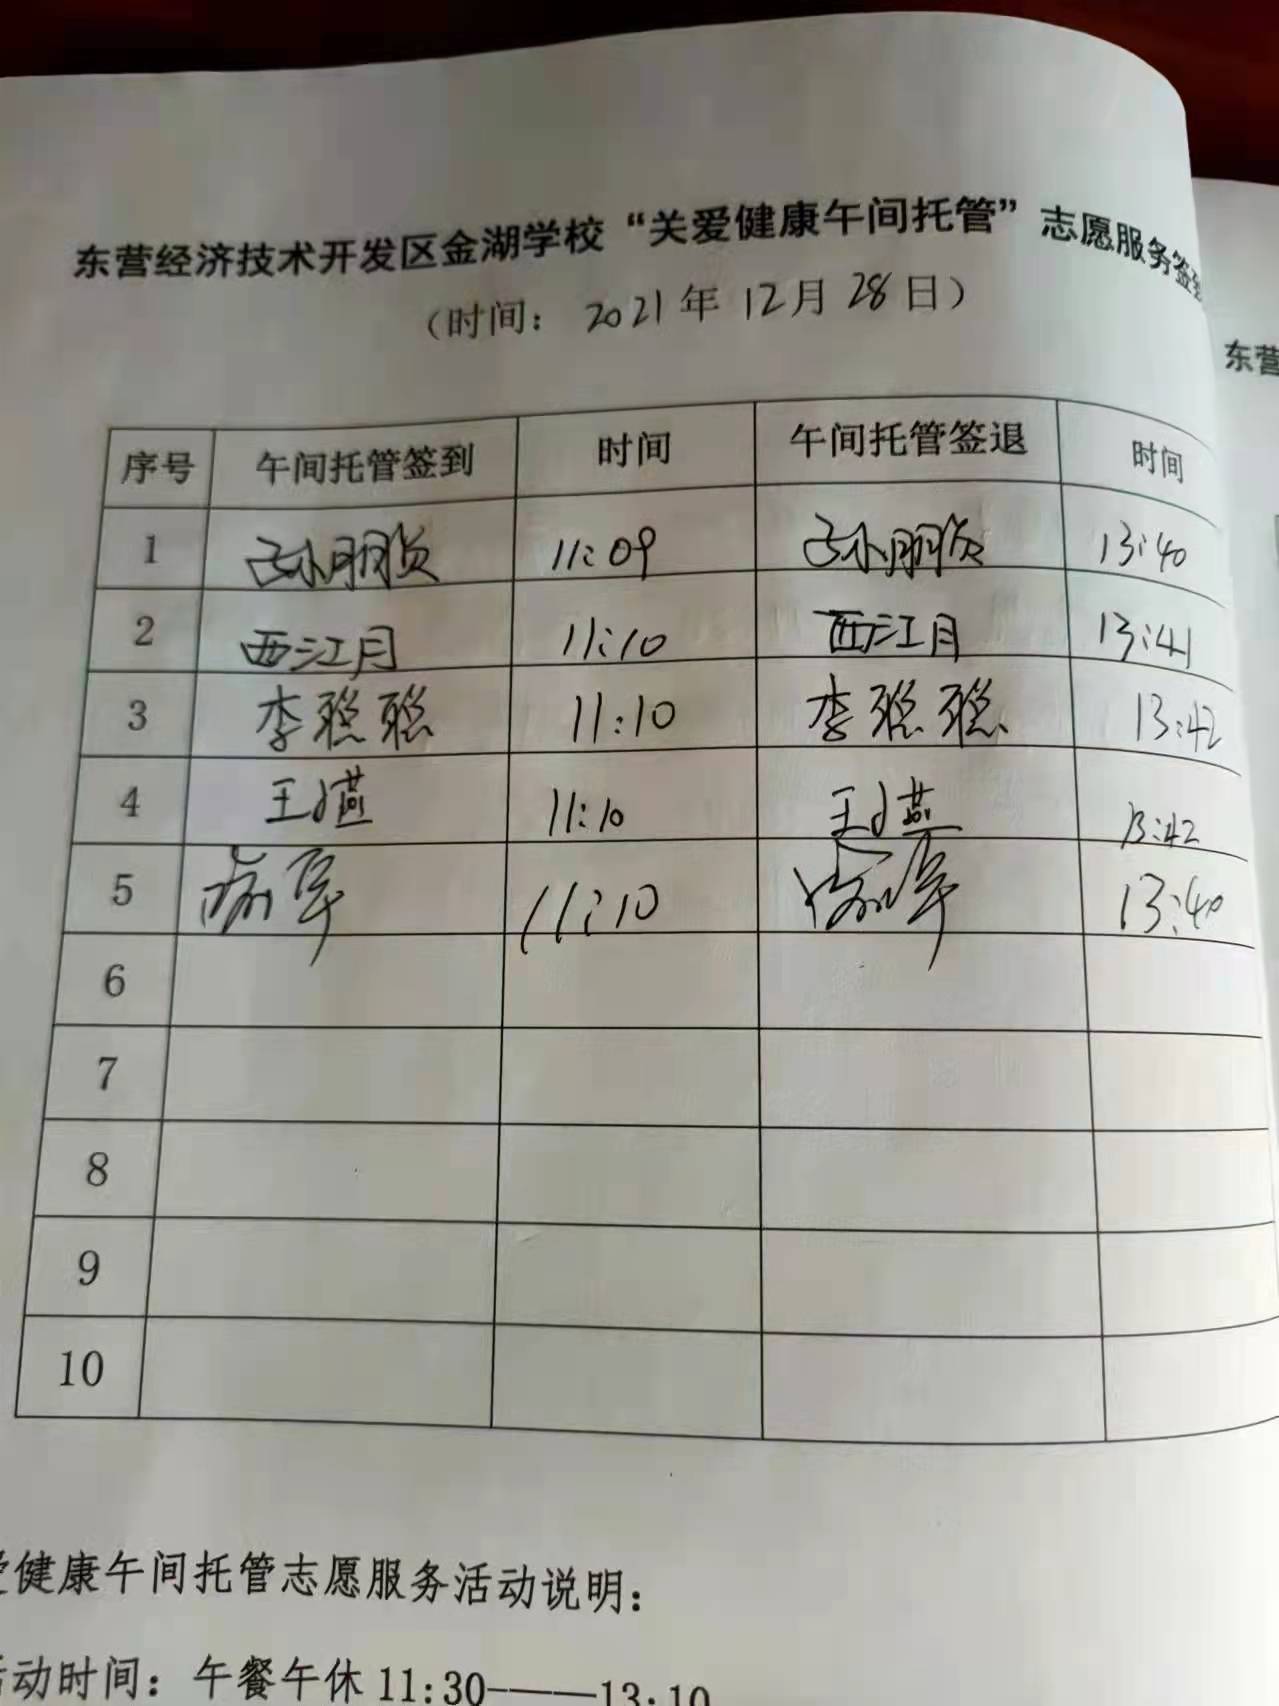 东营经济技术开发区金湖学校“关爱健康午间托管”志愿服务签到
（时间： 2021年12月28日）
东营
序号 午间托管签到 时间 午间托管签退 时间
1 孙朋贺 11:09 孙朋贺 13:40
2 西江月 11:10 西江月 13:41
3 李聪聪 11:10 李聪聪 13:42
4 王嬿 11:10 王嬿 13:42
5 11:10 13:40
6
7
8
9
10
爱健康午间托管志愿服务活动说明：
活动时间：午餐午休 11:30———13:10